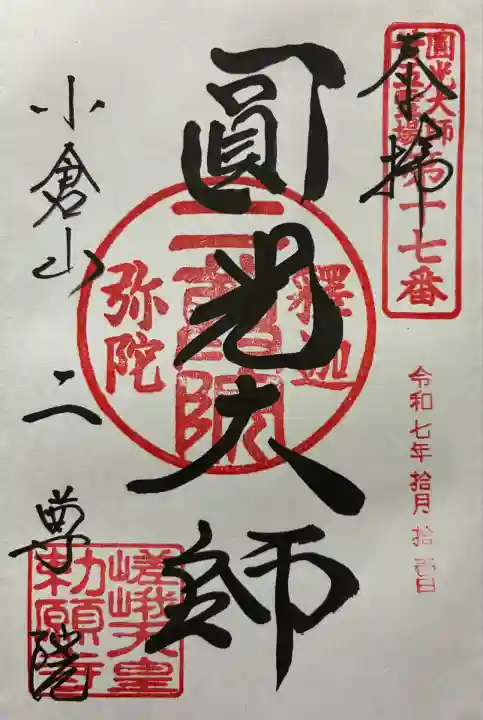 奉拝
圓光大師
廿五霊場第十七番
令和七年拾月拾壱日
圓光大師
釋迦
二尊院
弥陀
小倉山 二尊院
嵯峨天皇
勅願寺